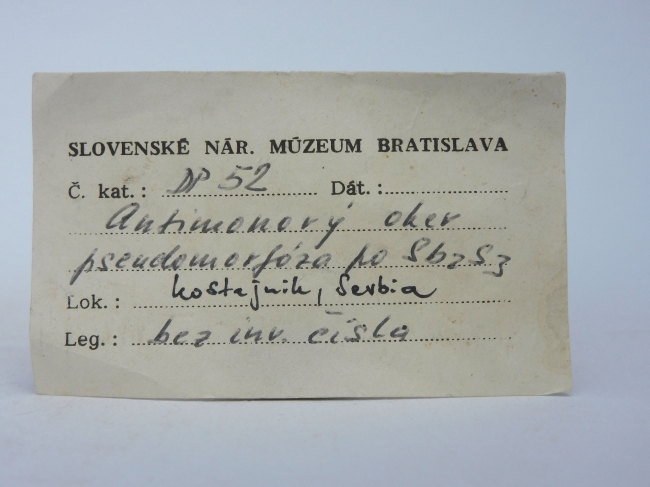 SLOVENSKÉ NÁR. MÚZEUM BRATISLAVA
Č. kat.: DP 52 Dát.:
Antimonový oker
pseudomorfóza po Sb2S3
Lok.: Kostajnik, Serbia
Leg.: bez inv. čísla